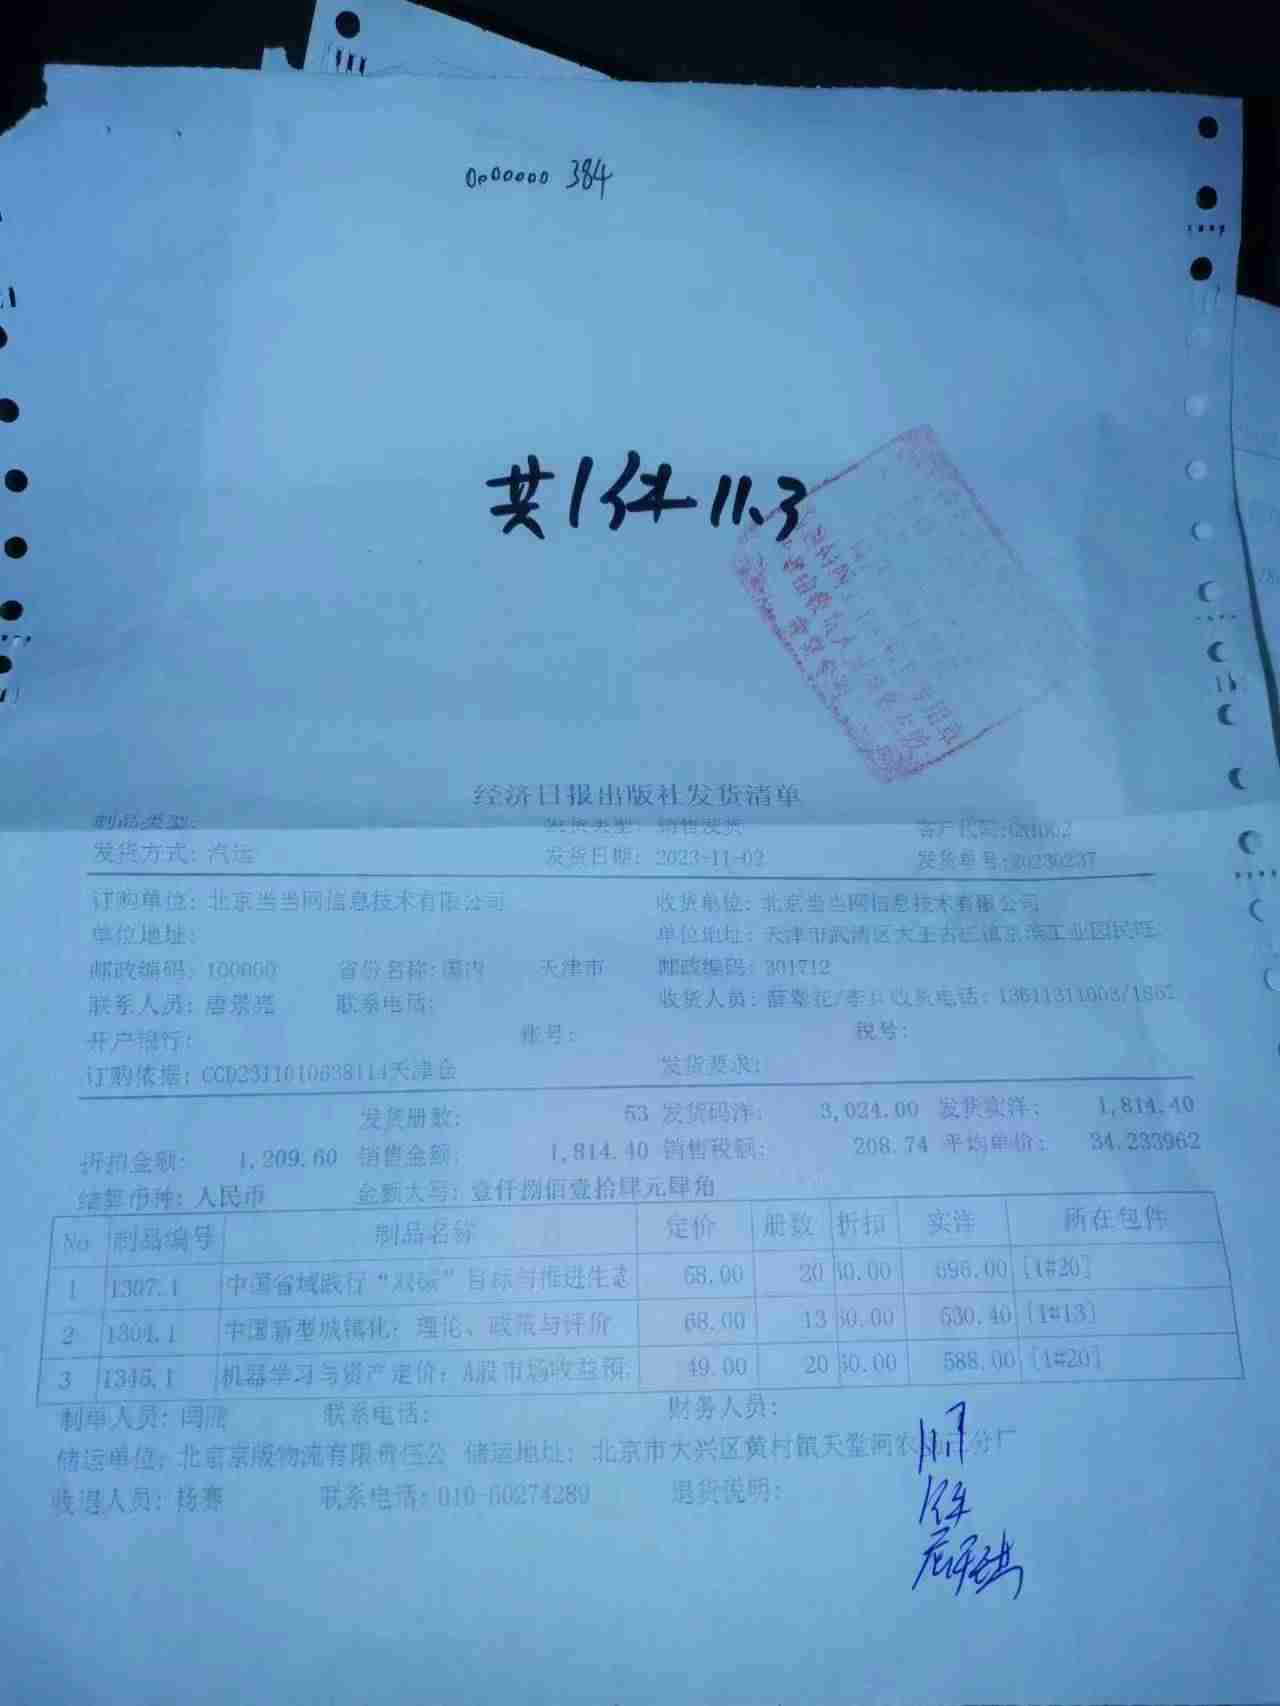 0000000 384
共1件 11.3
经济日报出版社发货清单
制品类型: 发货类型: 销售发货 客户代码:
发货方式: 汽运 发货日期: 2023-11-02 发货单号:20230237
订购单位: 北京当当网信息技术有限公司 收货单位: 北京当当网信息技术有限公司
单位地址: 单位地址: 天津市武清区大王古庄镇京滨工业园民旺
邮政编码: 100000 省份名称: 国内 天津市 邮政编码: 301712
联系人员: 唐景亮 联系电话: 收货人员: 收货电话:
开户银行: 账号: 税号:
订购依据: 天津仓 发货要求:
发货册数: 53 发货码洋: 3,024.00 发货实洋: 1,814.40
折扣金额: 1,209.60 销售金额: 1,814.40 销售税额: 208.74 平均单价: 34.233962
结算币种: 人民币 金额大写: 壹仟捌佰壹拾肆元肆角
No 制品编号 制品名称 定价 册数 折扣 实洋 所在包件
1 1307.1 中国省域践行“双碳”目标与推进生态 58.00 20 60.00 696.00 [1#20]
2 1304.1 中国新型城镇化: 理论、政策与评价 68.00 13 60.00 530.40 [1#13]
3 1345.1 机器学习与资产定价: A股市场收益预 49.00 20 60.00 588.00 [1#20]
制单人员: 联系电话: 财务人员:
储运单位: 北京京版物流有限责任公 储运地址: 北京市大兴区黄村镇天堂河农 分厂
收退人员: 杨赛 联系电话: 010-60274289 退货说明:
11.7
1件